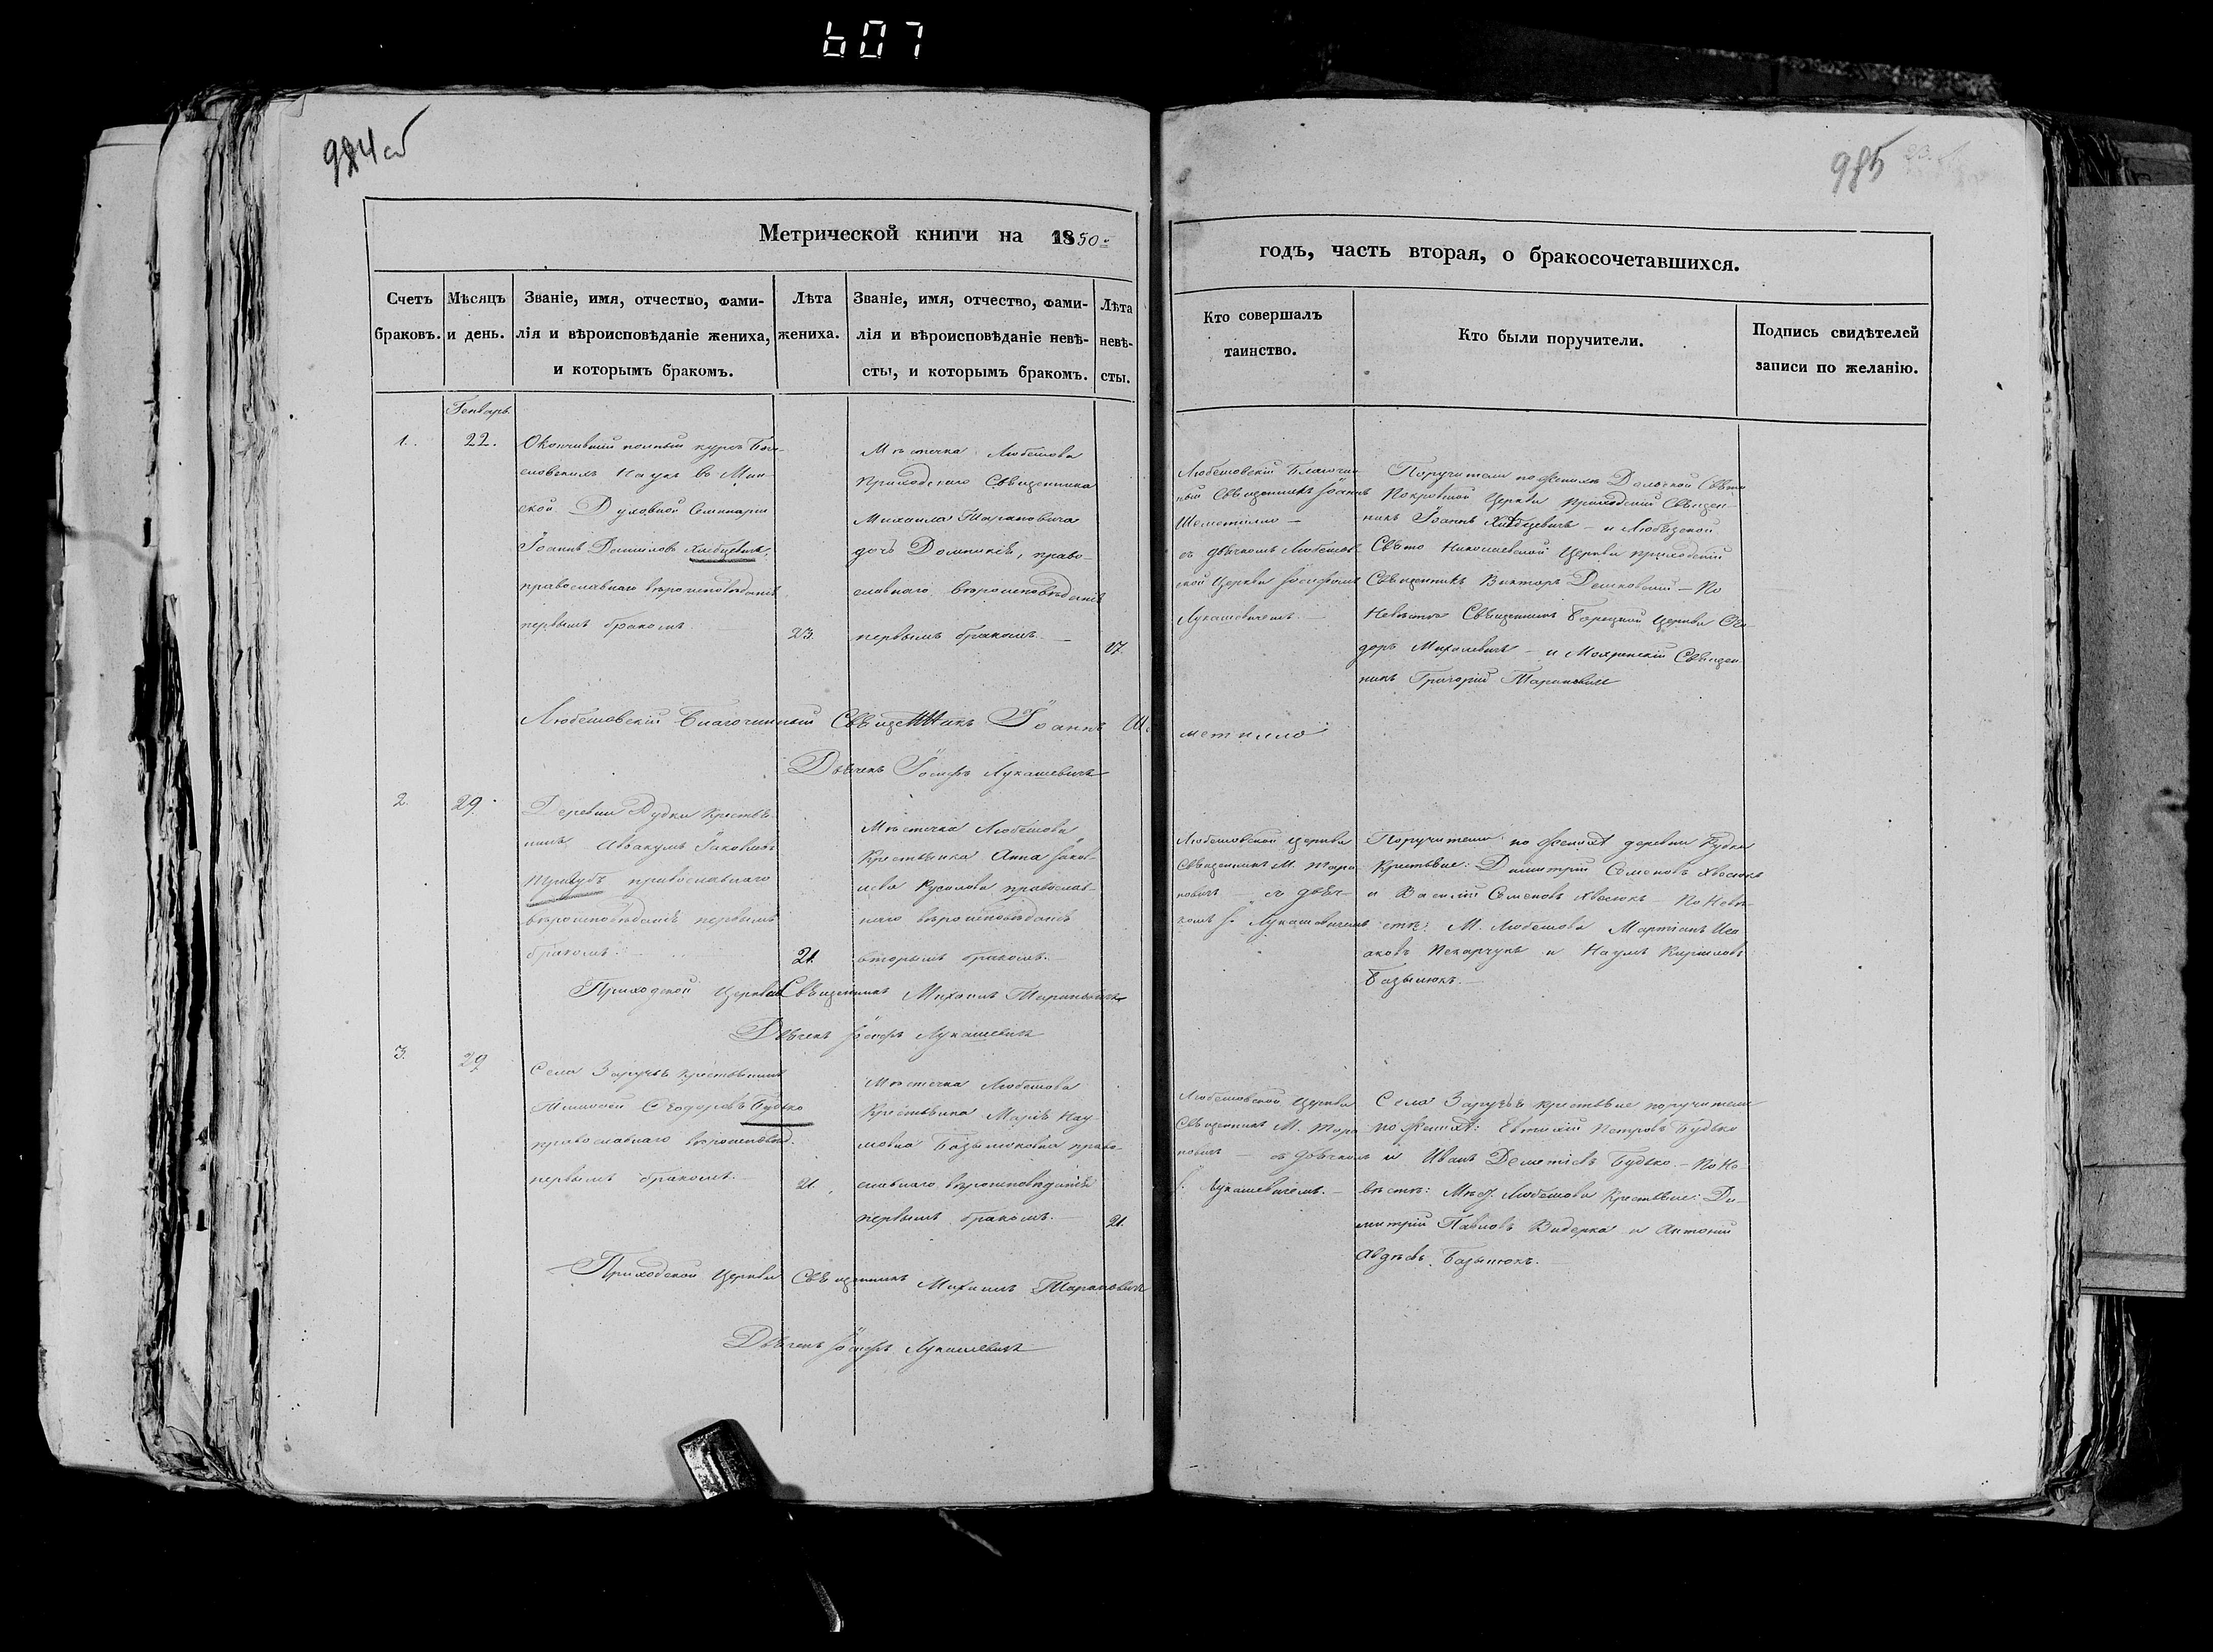 607
984 об
985
Метрической книги на 1850.
годъ, часть вторая, о бракосочетавшихся.
Счетъ браковъ.
Мѣсяцъ и день.
Званіе, имя, отчество, фами-
лія и вѣроисповѣданіе жениха,
и которымъ бракомъ.
Лѣта
жениха.
Званіе, имя, отчество, фами-
лія и вѣроисповѣданіе невѣ-
сты, и которымъ бракомъ.
Лѣта
невѣ-
сты.
Кто совершалъ
таинство.
Кто были поручители.
Подпись свидѣтелей
записи по желанію.
Генварь
1.
22.
Окончившій полный курсъ Бого-
словскихъ Наукъ въ Мин-
ской Духовной Семинаріи
Іоаннъ Даниловъ
православнаго вѣроисповѣданія
первымъ бракомъ.
23.
Мѣстечка Любешова
Приходскаго Священника
Михаила Тарановича
дочь Домникія, право-
славнаго вѣроисповѣданія
первымъ бракомъ.
17.
Любешовскій Благочин-
ный Священникъ Іоаннъ
Шеметилло
съ дьячкомъ Любешов-
ской Церкви Іосифомъ
Лукашевичемъ.
Поручители по женихѣ Дольской Свято
Покровской Церкви приходскій Священ-
никъ Іоаннъ и Любязской
Свято Николаевской Церкви приходскій
Священникъ Викторъ По
Невѣстѣ Священникъ Церкви Ѳео-
доръ Михалевичъ и Священ-
никъ Григорій Тарановичъ
Любешовскій Благочинный Священникъ Іоаннъ Ше
метилло
Дьячекъ Іосифъ Лукашевичъ
2.
29.
Деревни Рудки крестья-
нинъ Аввакумъ Іаковлевъ
православнаго
вѣроисповѣданія первымъ
бракомъ.
21.
Мѣстечка Любешова
Крестьянка Анна Іаков-
лева православ-
наго вѣроисповѣданія
вторымъ бракомъ.
Любешовской церкви
Священникъ М. Тара-
новичъ съ дьяч-
комъ І. Лукашевичемъ
Поручители по женихѣ деревни Рудки
Крестьяне: Димитрій Семеновъ Хвесюкъ
и Василій Семеновъ Хвесюкъ По Невѣ-
стѣ: М. Любешова Мартинъ Иса-
аковъ Пекарчукъ и Наумъ Кириловъ
Базылюкъ.
Приходской Церкви Священникъ Михаилъ Тарановичъ
Дьячекъ Іосифъ Лукашевичъ
3.
29
Села Заручья крестьянинъ
Тимоѳей Ѳеодоровъ Будько
православнаго вѣроисповѣд.
первымъ бракомъ.
21.
Мѣстечка Любешова
Крестьянка Марія Нау-
мовна Базылюковна право-
славнаго вѣроисповѣданія
первымъ бракомъ.
21.
Любешовской Церкви
Священникъ М. Тара-
новичъ съ дьячкомъ
І. Лукашевичемъ.
Села Заручья крестьяне поручители
по женихѣ: Евтихій Петровъ Будько
и Иванъ Будько. По Не-
вѣстѣ: Мѣст. Любешова Крестьяне: Ди-
митрій Павловъ Видерка и Антоній
Авдѣевъ Базылюкъ.
Приходской Церкви Священникъ Михаилъ Тарановичъ
Дьячекъ Іосифъ Лукашевичъ